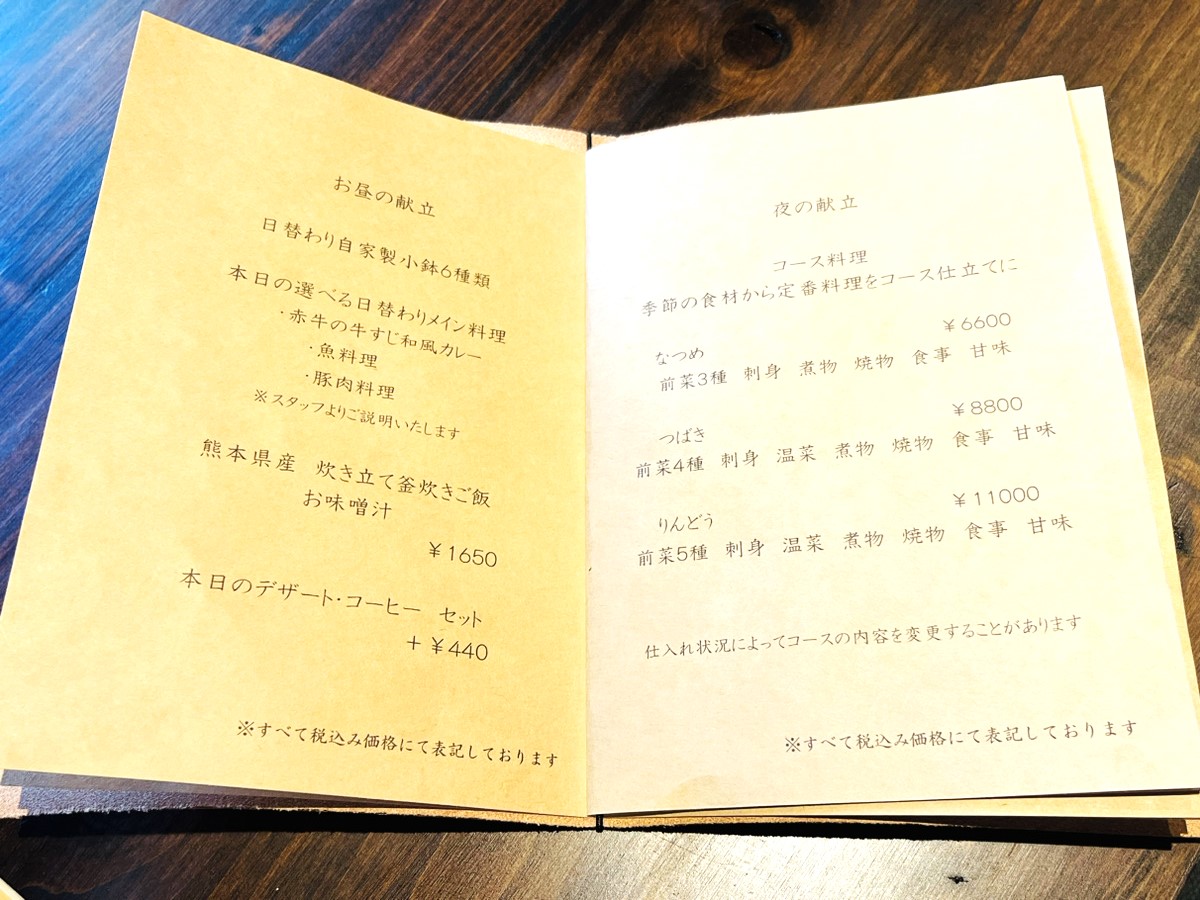 お昼の献立
日替わり自家製小鉢6種類
本日の選べる日替わりメイン料理
・赤牛の牛すじ和風カレー
・魚料理
・豚肉料理
※スタッフよりご説明いたします
熊本県産 炊き立て釜炊きご飯
お味噌汁
￥1650
本日のデザート・コーヒー セット
＋￥440
※すべて税込み価格にて表記しております
夜の献立
コース料理
季節の食材から定番料理をコース仕立てに
￥6600
なつめ
前菜3種 刺身 煮物 焼物 食事 甘味
￥8800
つばき
前菜4種 刺身 温菜 煮物 焼物 食事 甘味
￥11000
りんどう
前菜5種 刺身 温菜 煮物 焼物 食事 甘味
仕入れ状況によってコースの内容を変更することがあります
※すべて税込み価格にて表記しております